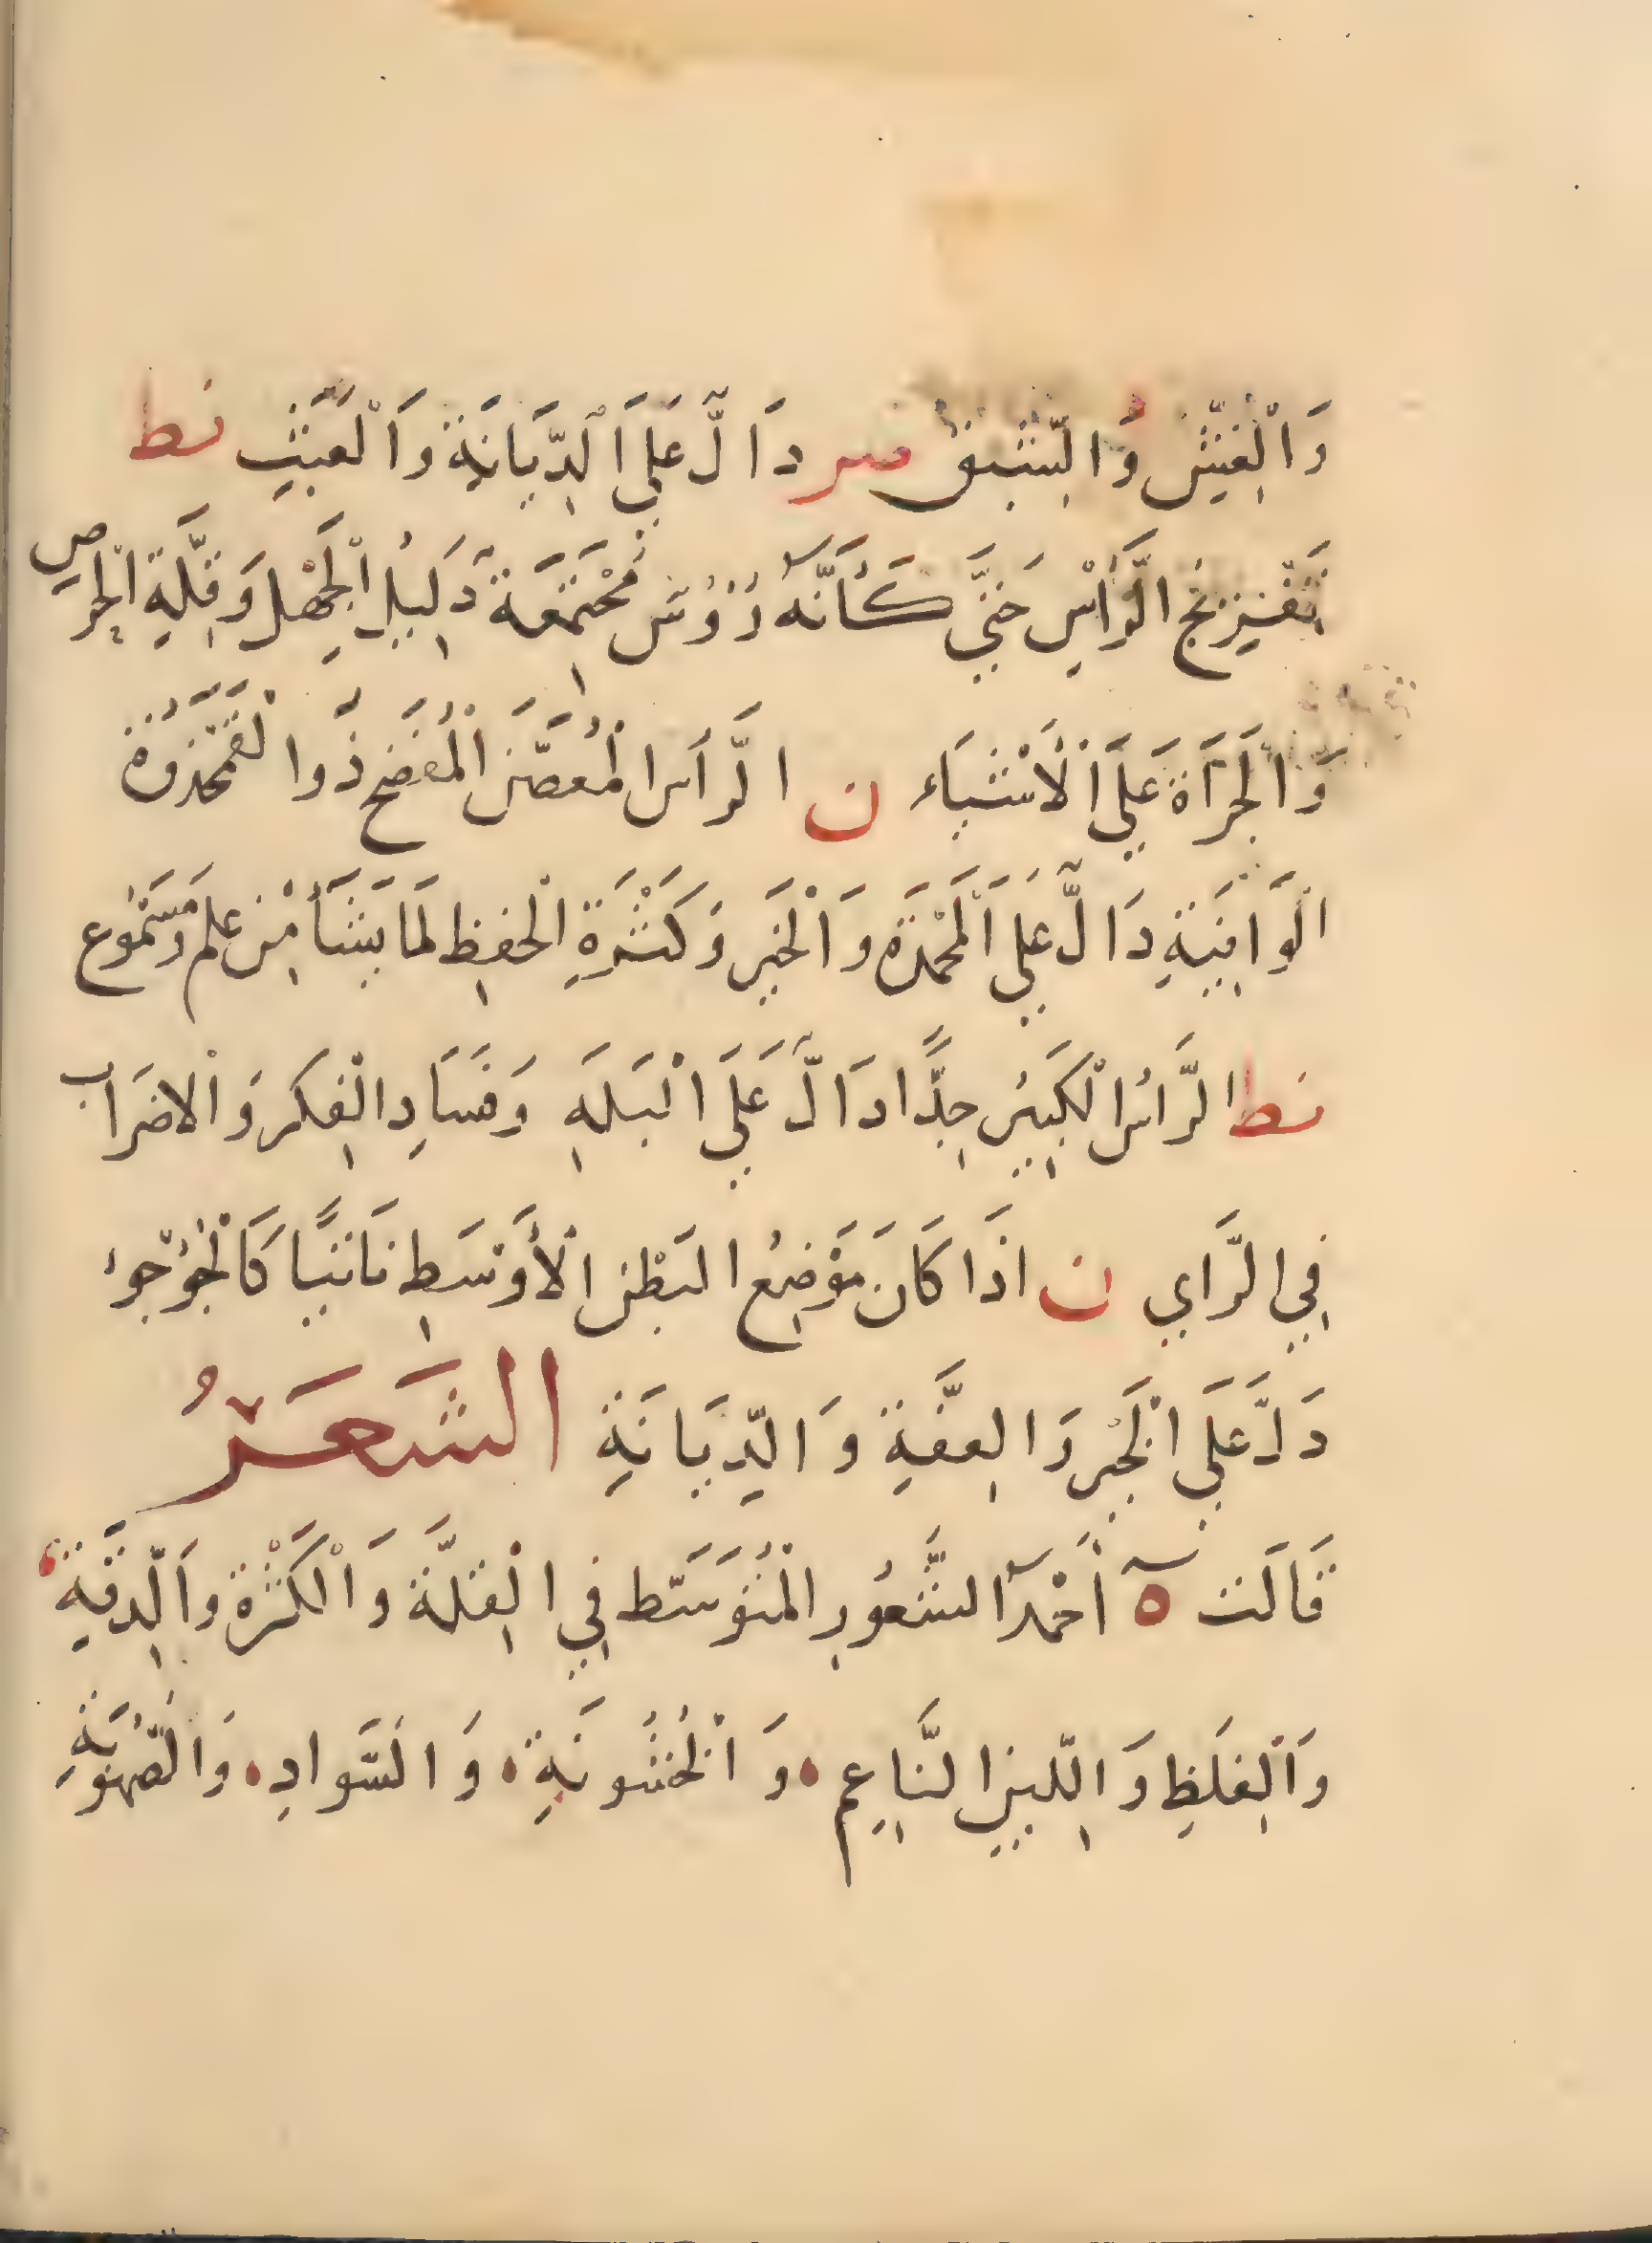 وَالْغِشِّ وُالشَّبَقِ سر دَالَّ عَلَى الْدِّيَانَةِ وَالْعَبَثِ نط
تَفْرِيجُ الرَّأْسِ حَتَّى كَأَنَّهُ رُؤُس مُجْتَمِعَة دَلِيلُ الْجَهْلِ وَقِلَّةِ الْحِرْصِ
وَالْجَرَآَة عَلَى الْأَشْيَاء ن الرَّأس المُعَصَّن المُفَضَح ذَوا لْقَمَحْدُوَة
الوَافِيَةِ دَالَّ عَلَى الَمحْمَدَة وَالْخَيرِ وَكَثْرَةِ الْحِفظِ لَمَا يَشَأ مِنْ علم وَمَسْمُوع
نط الرَّاسُ الْكَبِيرُ جِدًّا دَالَّ عَلَى الْبَلَهِ وَفَسَادِ الْفِكر وَالاضرَاب
فِي الرَّاي ن اذَا كَانَ مَوْضِعُ البَطْنِ الْأَوْسَطِ نَاتيًا كَالْجُوْجوُ
دَلَّ عَلَى الْخَيْرِ وَالعِفَّةِ وَالدِّيَانَةِ الشَعَرُ
قَالَت ه أَحْمَدُ الشَّعُورِ الْمُتَوَسَّط فِي الْقِلَّة وَالْكَثْرَة وَالدِّقَّةِ
وَالْغِلَظِ وَاللِّينِ النَّاعِمِ وَالْخُشُونَةِ وَالسَّوادِ وَالصُّهُوبَةِ